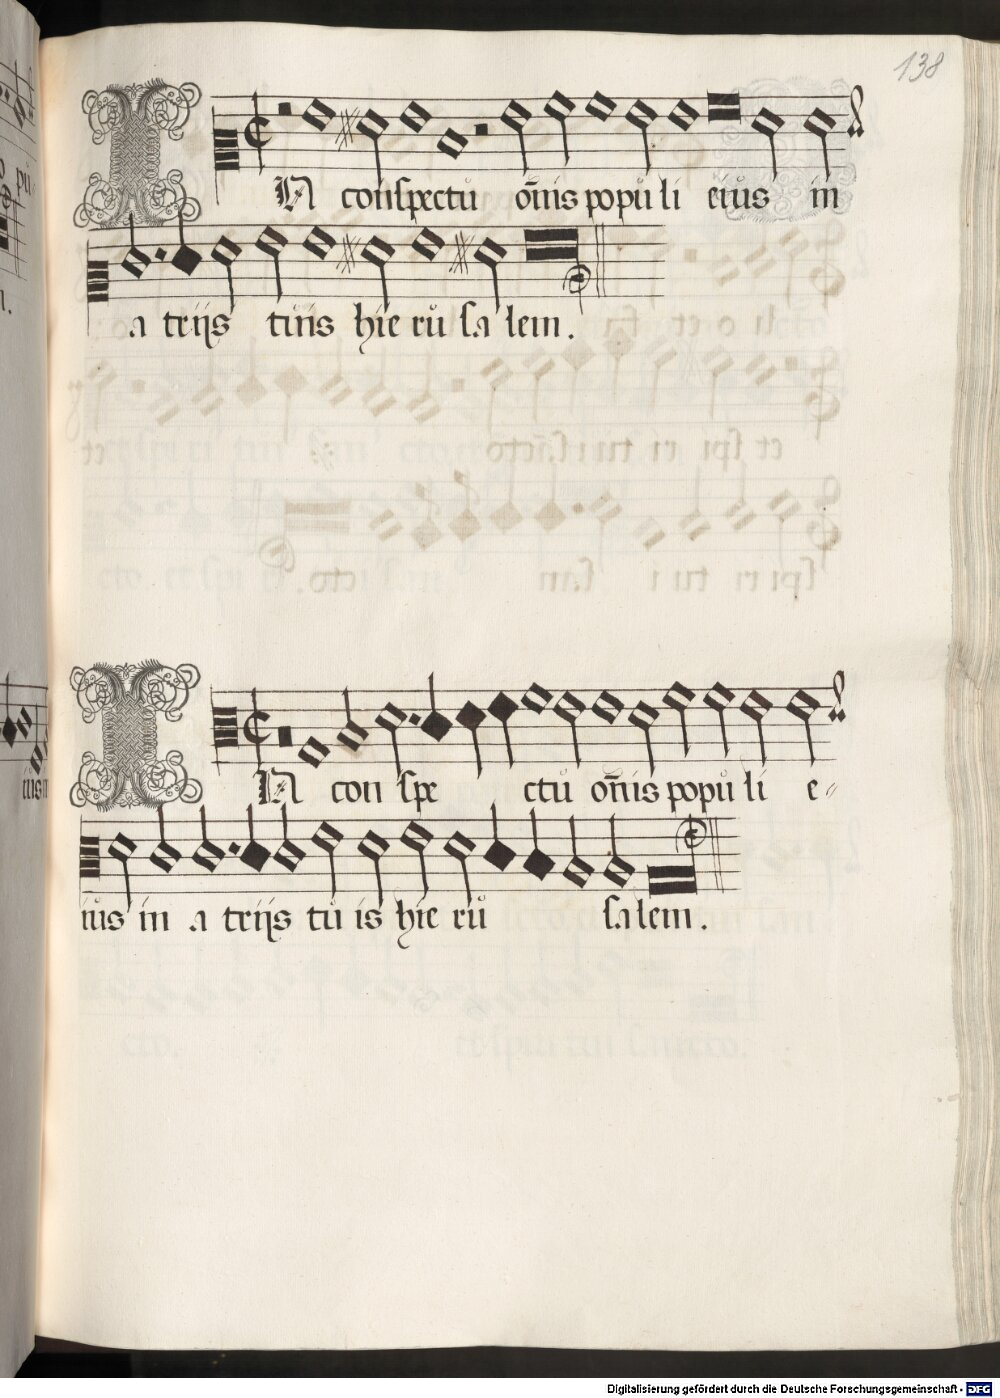 138
IN conſpectů om̄is popůli eiůs in
atrijs tuīs hierůſalem.
IN conſpectů om̄is popůli e⸗
iůs in atrijs tůis hierů ſalem.
Digitalisierung gefördert durch die Deutsche Forschungsgemeinschaft - DFG